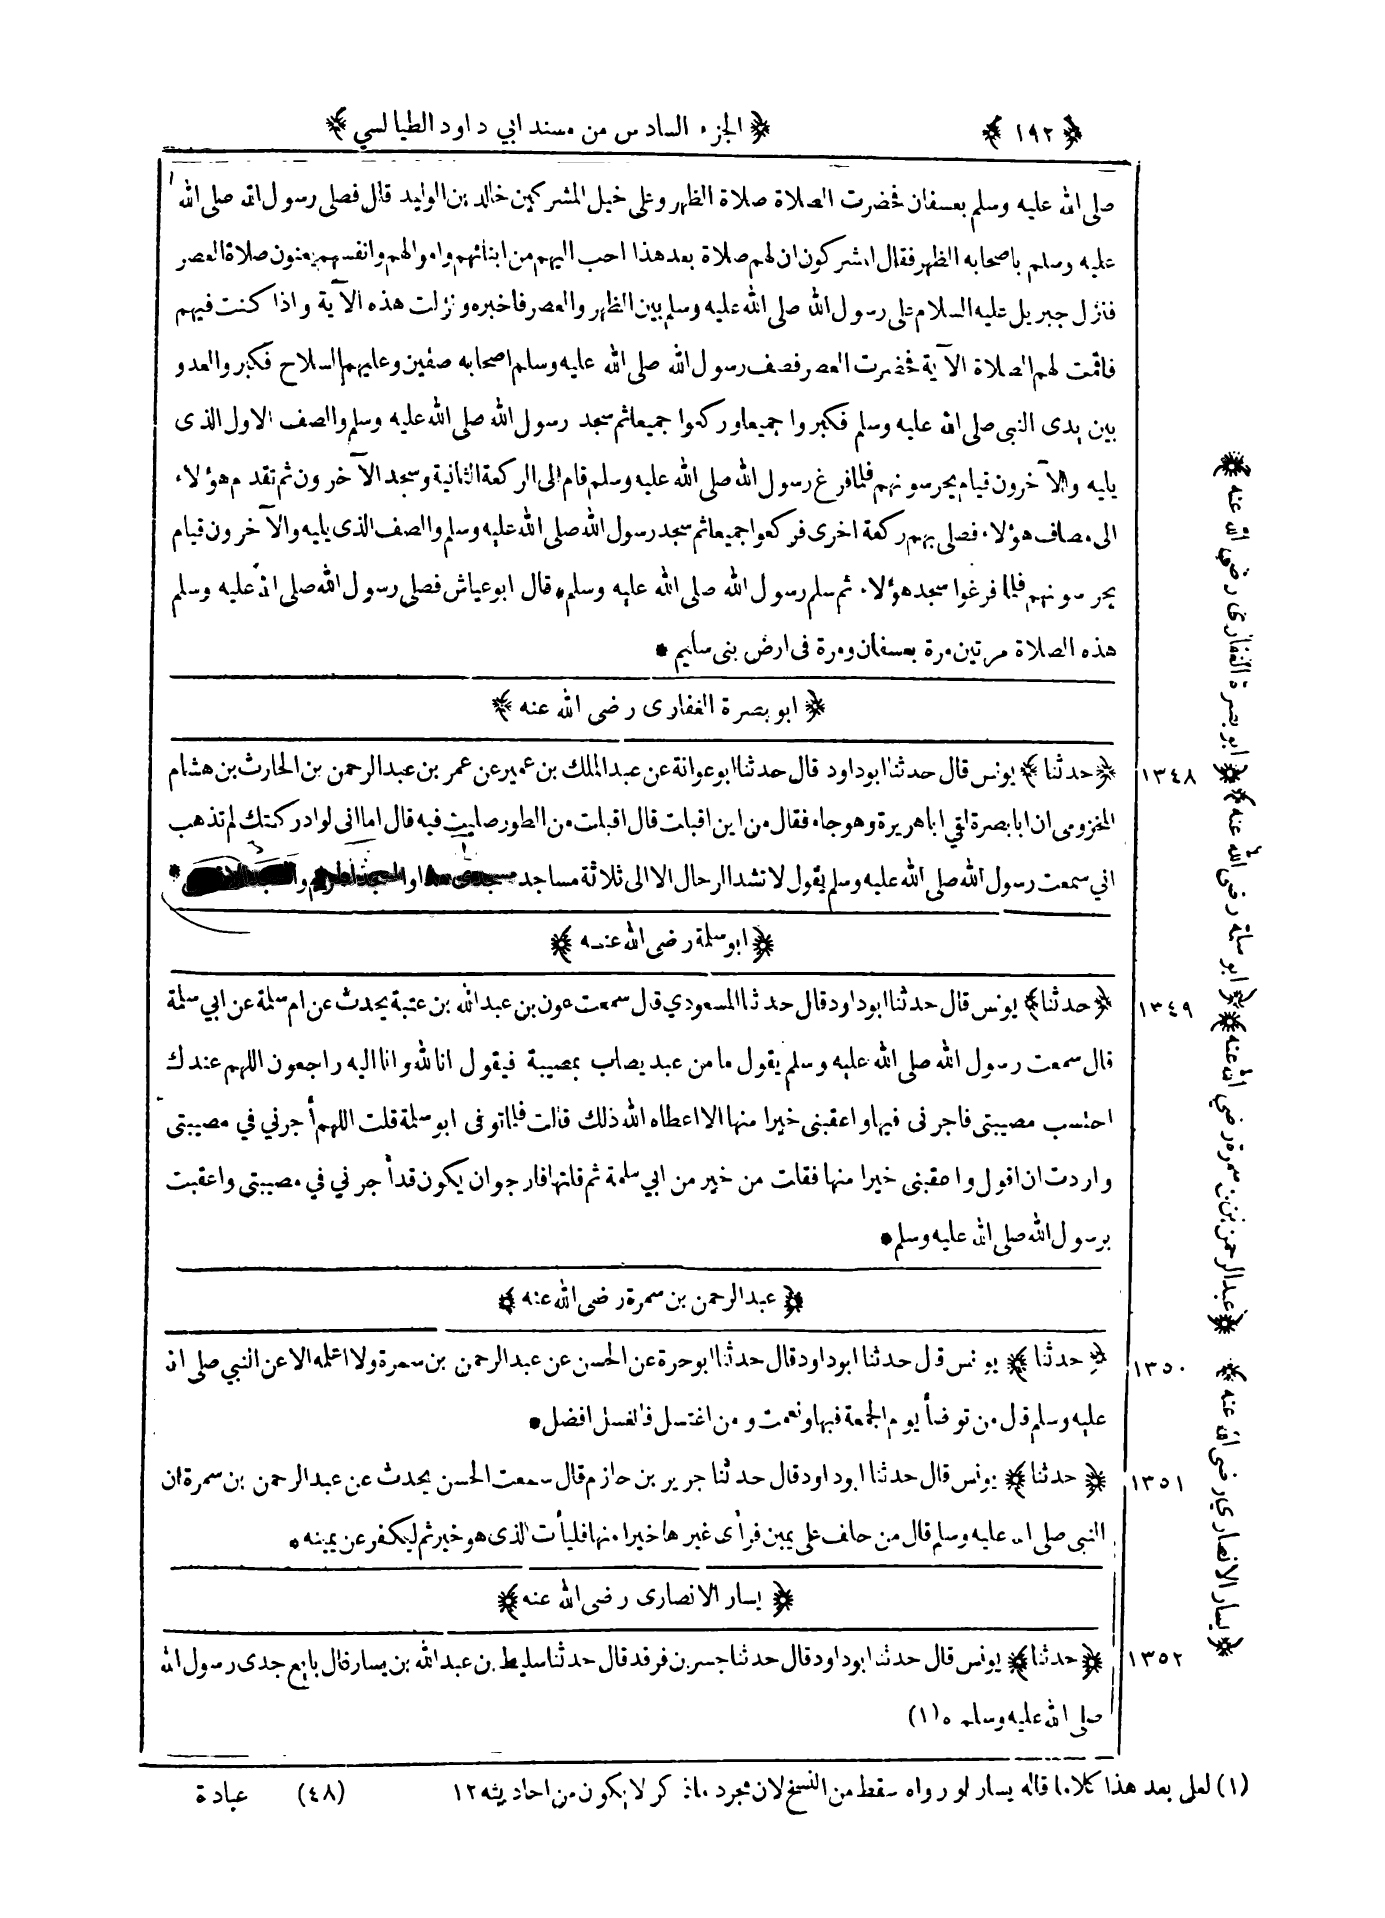 ﴿١٩٢﴾ ﴿الجزء السادس من مسند ابي داود الطيالسي﴾
صلى الله عليه وسلم بعسفان فحضرت الصلاة صلاة الظهر وعلى خيل المشركين خالد بن الوليد قال فصلى رسول الله صلى الله
عليه وسلم باصحابه الظهر فقال المشركون ان لهم صلاة بعد هذا احب اليهم من ابنائهم واموالهم وانفسهم يعنون صلاة العصر
فنزل جبريل عليه السلام على رسول الله صلى الله عليه وسلم بين الظهر والعصر فاخبره ونزلت هذه الآية واذا كنت فيهم
فاقمت لهم الصلاة الآية فحضرت العصر فصف رسول الله صلى الله عليه وسلم اصحابه صفين وعليهم السلاح فكبر والعدو
بين يدى النبي صلى الله عليه وسلم فكبروا جميعا وركعوا جميعا ثم سجد رسول الله صلى الله عليه وسلم والصف الاول الذى
يليه والآخرون قيام يحرسونهم فلما فرغ رسول الله صلى الله عليه وسلم قام الى الركعة الثانية وسجد الآخرون ثم تقدم هؤلاء
الى مصاف هؤلاء فصلى بهم ركعة اخرى فركعوا جميعا ثم سجد رسول الله صلى الله عليه وسلم والصف الذى يليه والآخرون قيام
يحرسونهم فلما فرغوا سجد هؤلاء ثم سلم رسول الله صلى الله عليه وسلم * قال ابو عياش فصلى رسول الله صلى الله عليه وسلم
هذه الصلاة مرتين مرة بعسفان ومرة فى ارض بنى سليم *
﴿ابو بصرة الغفارى رضى الله عنه﴾
١٣٤٨ ﴿حدثنا﴾ يونس قال حدثنا ابو داود قال حدثنا ابو عوانة عن عبد الملك بن عمير عن عمر بن عبد الرحمن بن الحارث بن هشام
المخزومى ان ابا بصرة لقي ابا هريرة وهو جاء فقال من اين اقبلت قال اقبلت من الطور صليت فيه قال اما انى لو ادركتك لم تذهب
اني سمعت رسول الله صلى الله عليه وسلم يقول لا تشد الرحال الا الى ثلاثة مساجد
﴿ابو سلمة رضى الله عنه﴾
١٣٤٩ ﴿حدثنا﴾ يونس قال حدثنا ابو داود قال حدثنا المسعودي قال سمعت عون بن عبد الله بن عتبة يحدث عن ام سلمة عن ابي سلمة
قال سمعت رسول الله صلى الله عليه وسلم يقول ما من عبد يصاب بمصيبة فيقول انا لله وانا اليه راجعون اللهم عندك
احتسب مصيبتى فاجرنى فيها واعقبنى خيرا منها الا اعطاه الله ذلك قالت فلما توفى ابو سلمة قلت اللهم أجرني في مصيبتى
واردت ان اقول واعقبنى خيرا منها فقلت من خير من ابي سلمة ثم قلتها فارجو ان يكون قد أجرني في مصيبتى واعقبت
برسول الله صلى الله عليه وسلم *
﴿عبد الرحمن بن سمرة رضى الله عنه﴾
١٣٥٠ ﴿حدثنا﴾ يونس قال حدثنا ابو داود قال حدثنا ابو حرة عن الحسن عن عبد الرحمن بن سمرة ولا اعلمه الا عن النبي صلى الله
عليه وسلم قال من توضأ يوم الجمعة فبها ونعمت ومن اغتسل فالغسل افضل *
١٣٥١ ﴿حدثنا﴾ يونس قال حدثنا ابو داود قال حدثنا جرير بن حازم قال سمعت الحسن يحدث عن عبد الرحمن بن سمرة ان
النبى صلى الله عليه وسلم قال من حلف على يمين فرأى غيرها خيرا منها فليأت الذى هو خير ثم ليكفر عن يمينه *
﴿يسار الانصارى رضى الله عنه﴾
١٣٥٢ ﴿حدثنا﴾ يونس قال حدثنا ابو داود قال حدثنا جسر بن فرقد قال حدثنا سليط بن عبد الله بن يسار قال بايع جدى رسول الله
صلى الله عليه وسلم * (١)
(١) لعل بعد هذا كلاما قاله يسار او رواه سقط من النسخ لان مجرد ما ذكر لا يكون من احاديثه ١٢ (٤٨) عبادة
﴿ابو بصرة الغفارى رضى الله عنه﴾
﴿ابو سلمة رضى الله عنه﴾
﴿عبد الرحمن بن سمرة رضي الله عنه﴾
﴿يسار الانصارى رضى الله عنه﴾